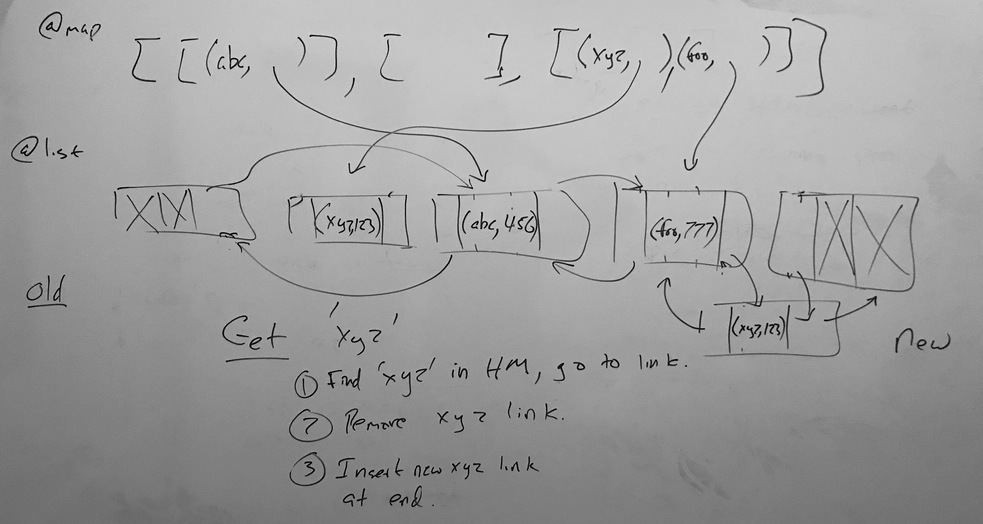 @map
[ [(abc, )], [ ], [(xyz, ),(foo, )] ]
@list
(xyz,123) (abc,456) (foo,777)
(xyz,123)
old
new
Get 'xyz'
① Find 'xyz' in HM, go to link.
② Remove xyz link.
③ Insert new xyz link
at end.